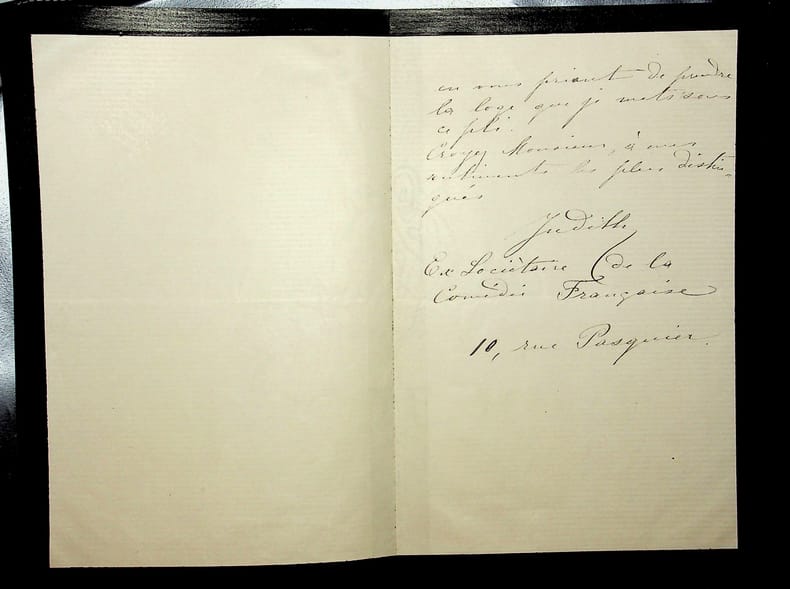 en vous priant de prendre
la loge que je mets sous
ce pli.
Croyez Monsieur, à mes
sentiments les plus distin-
gués
Judith
Ex Sociétaire de la
Comédie Française
10, rue Pasquier.